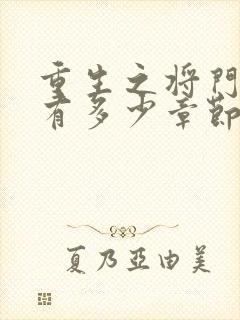 重生之将門
有多少章節
夏乃亞由美